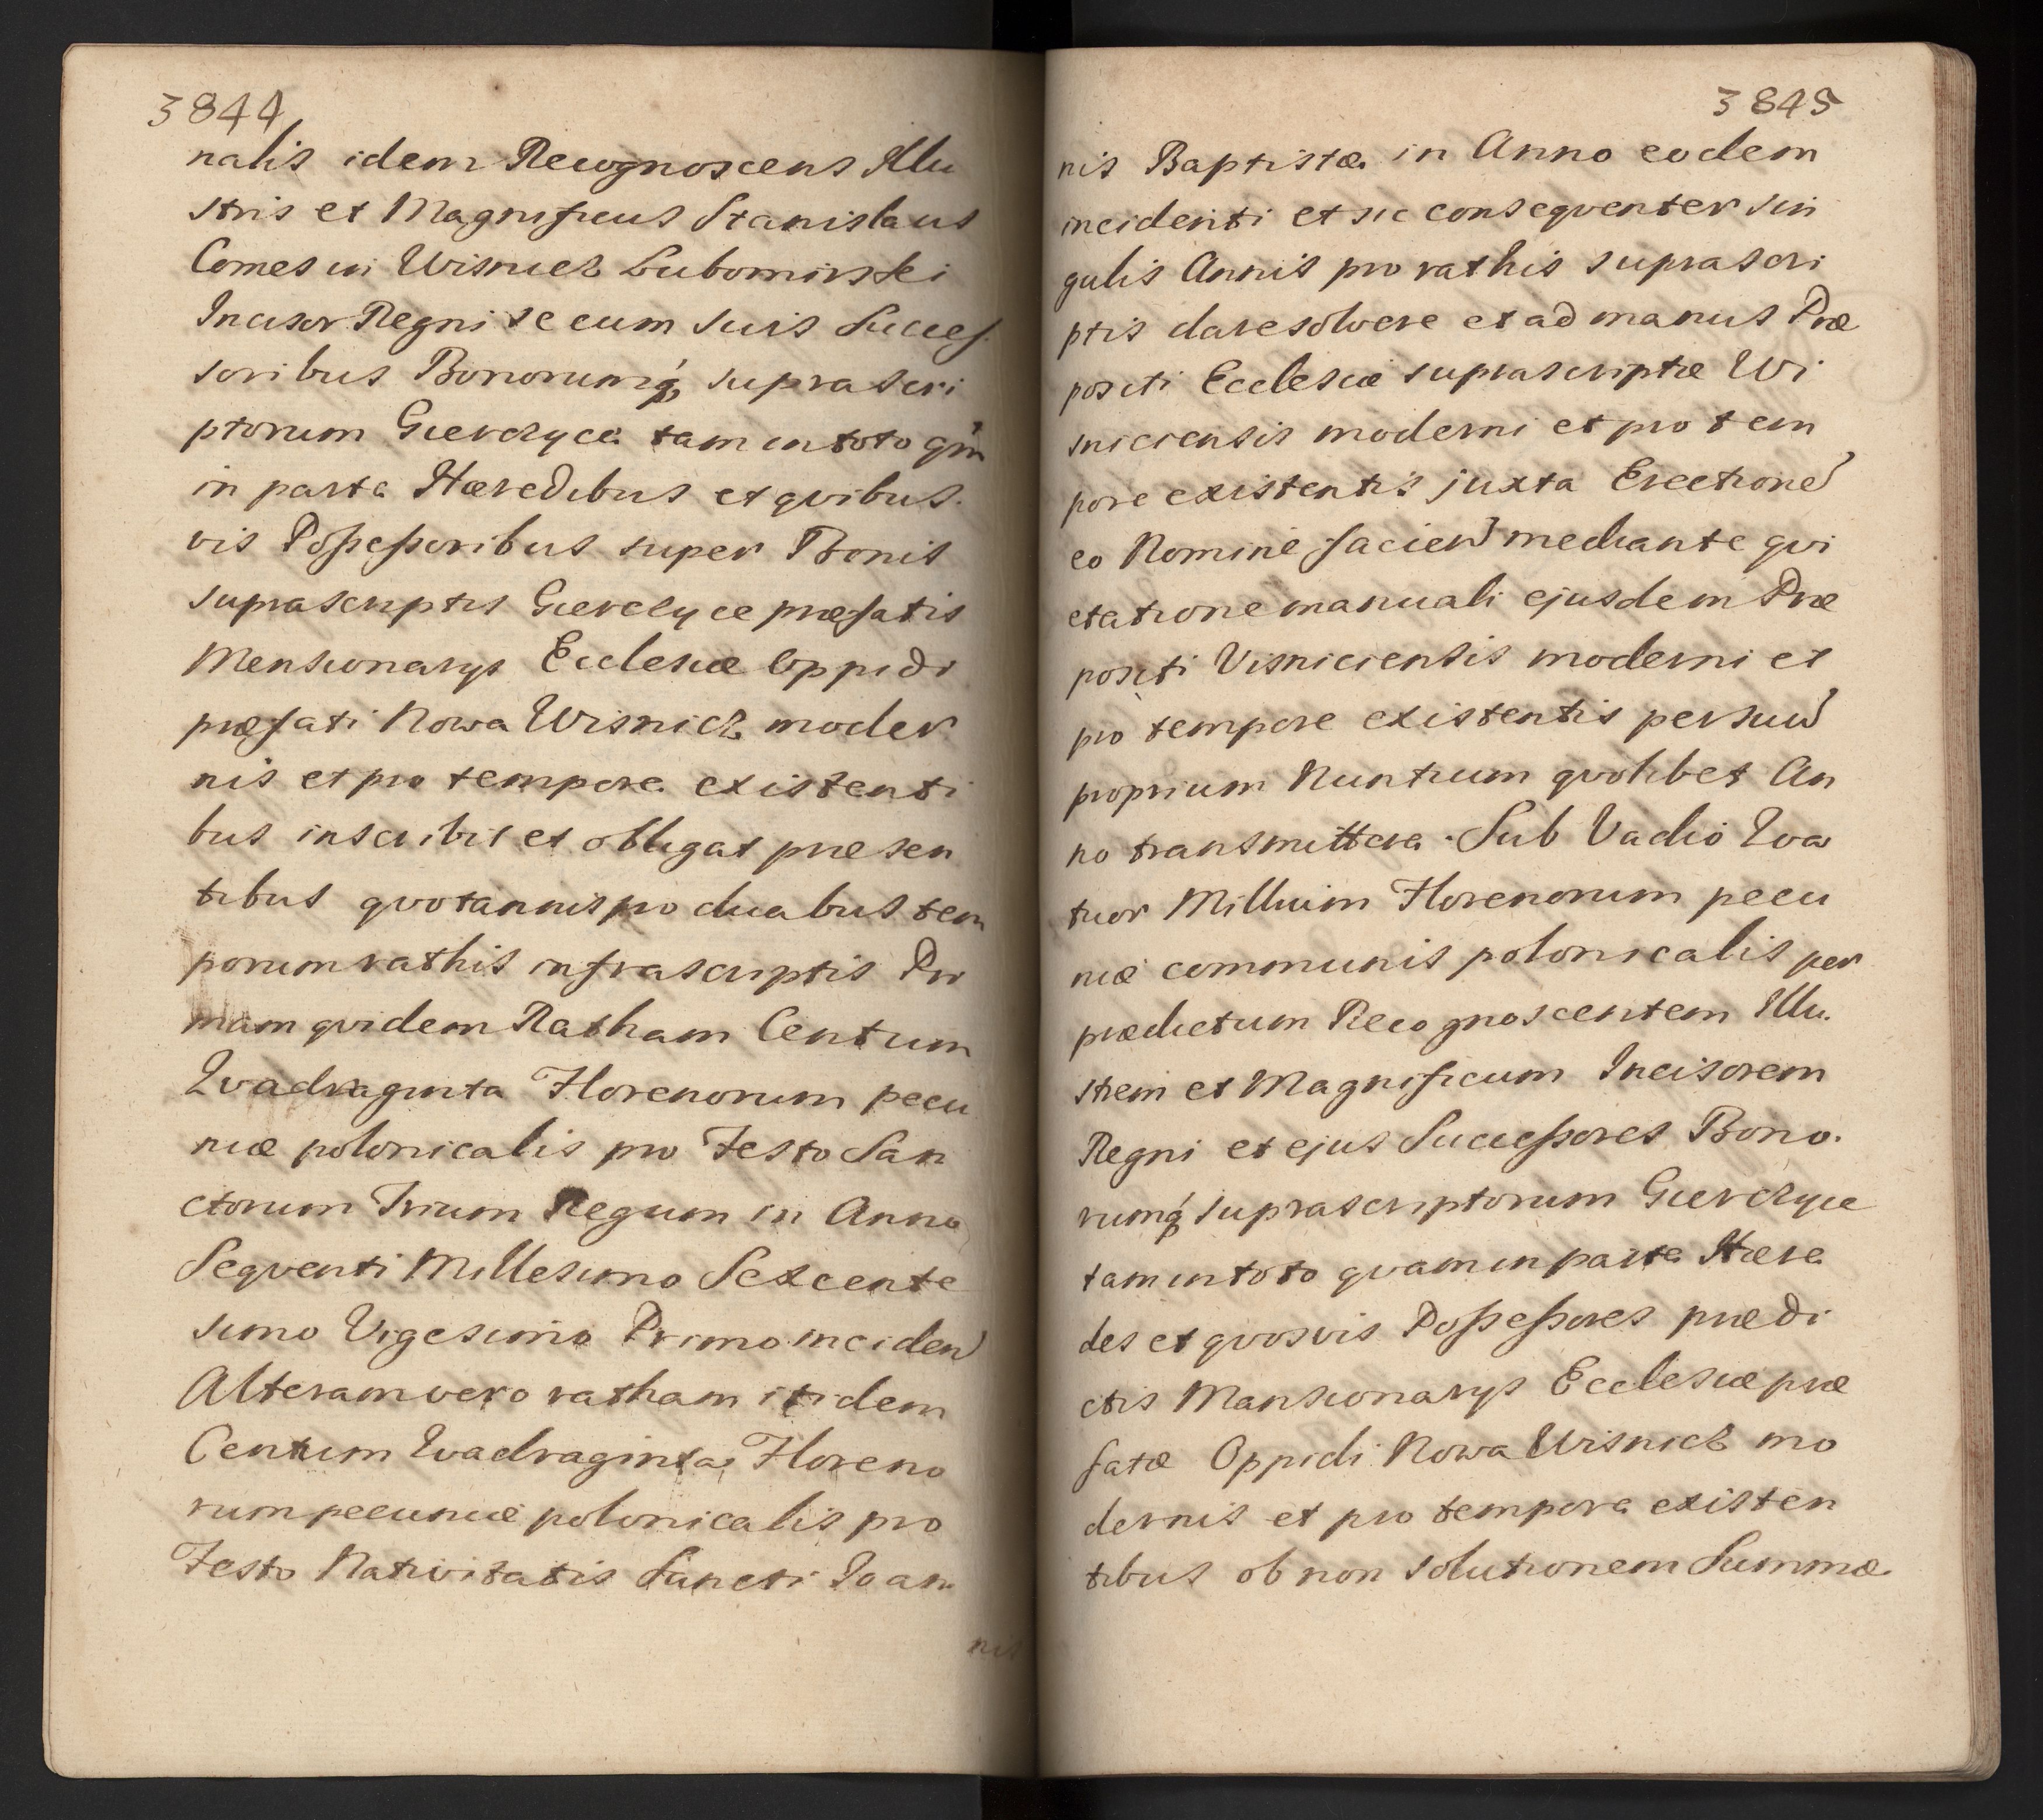 3844
nalis idem Recognoscens Illu
stris et Magnificus Stanislaus
Comes in Wisnicz Lubomirski
Incisor Regni se cum suis Succes
soribus Bonorumq́ supra scri
ptorum Gierczyce tam in toto qm̃
in parte Hæredibus et qvibus
vis Possessoribus super Bonis
suprascriptis Gierczyce præfatis
Mensionarys Ecclesiæ Oppidi
præfati Nowa Wisnicz moder
nis et pro tempore existenti
bus inscribit et obligat præsen
tibus qvotannis pro duabus tem
porum rathis infrascriptis Pri
mam qvidem Ratham Centum
Qvadraginta Florenorum pecu
niæ polonicalis pro Festo San
ctorum Trium Regum in Anno
Seqventi Millesimo Sexcente
simo Vigesimo Primo inciden
Alteram vero ratham itidem
Centum Qvadraginta Floreno
rum pecuniæ polonicalis pro
Festo Nativitatis Sancti Joan
nis
3845
nis Baptistæ in Anno eodem
incidenti et sic conseqventer sin
gulis Annis pro rathis suprascri
ptis dare solvere et ad manus Præ
positi Ecclesiæ suprascriptæ Wi
sniciensis moderni et pro tem
pore existentis juxta Erectione
eo Nomine facien mediante qvi
etatione manuali ejusdem Præ
positi Visniciensis moderni et
pro tempore existentis per suu
proprium Nuntium qvolibet An
no transmittere. Sub Vadio Qva
tuor Millium Florenorum pecu
niæ communis polonicalis per
prædictum Recognoscentem Illu.
strem et Magnificum Incisorem
Regni et ejus Successores Bono.
rumq́ suprascriptorum Gierczyce
tam in toto qvam in parte Hære
des et qvosvis Possessores prædi
ctis Mansionarys Ecclesiæ præ
fatæ Oppidi Nowa Wisnicz mo
dernis et pro tempore existen
tibus ob non solutionem Summæ